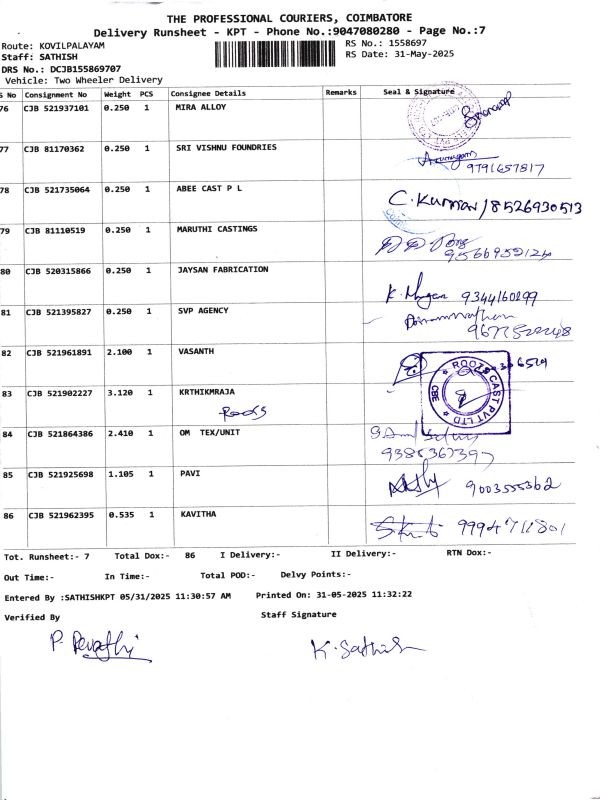 THE PROFESSIONAL COURIERS, COIMBATORE
Delivery Runsheet - KPT - Phone No.:9047080280 - Page No.:7
Route: KOVILPALAYAM RS No.: 1558697
Staff: SATHISH RS Date: 31-May-2025
DRS No.: DCJB155869707
Vehicle: Two Wheeler Delivery
S No Consignment No Weight PCS Consignee Details Remarks Seal & Signature
76 CJB 521937101 0.250 1 MIRA ALLOY
77 CJB 81170362 0.250 1 SRI VISHNU FOUNDRIES
9791657817
78 CJB 521735064 0.250 1 ABEE CAST P L
C. Kumar/8526930513
79 CJB 81110519 0.250 1 MARUTHI CASTINGS
80 CJB 520315866 0.250 1 JAYSAN FABRICATION
9344160299
81 CJB 521395827 0.250 1 SVP AGENCY
82 CJB 521961891 2.100 1 VASANTH
83 CJB 521902227 3.120 1 KRTHIKMRAJA
Roots
ROOTS CAST PVT LTD
CBE
84 CJB 521864386 2.410 1 OM TEX/UNIT
9385367397
85 CJB 521925698 1.105 1 PAVI
9003555362
86 CJB 521962395 0.535 1 KAVITHA
9994711801
Tot. Runsheet:- 7 Total Dox:- 86 I Delivery:- II Delivery:- RTN Dox:-
Out Time:- In Time:- Total POD:- Delvy Points:-
Entered By :SATHISHKPT 05/31/2025 11:30:57 AM Printed On: 31-05-2025 11:32:22
Verified By Staff Signature
P. Revathi K. Sathish